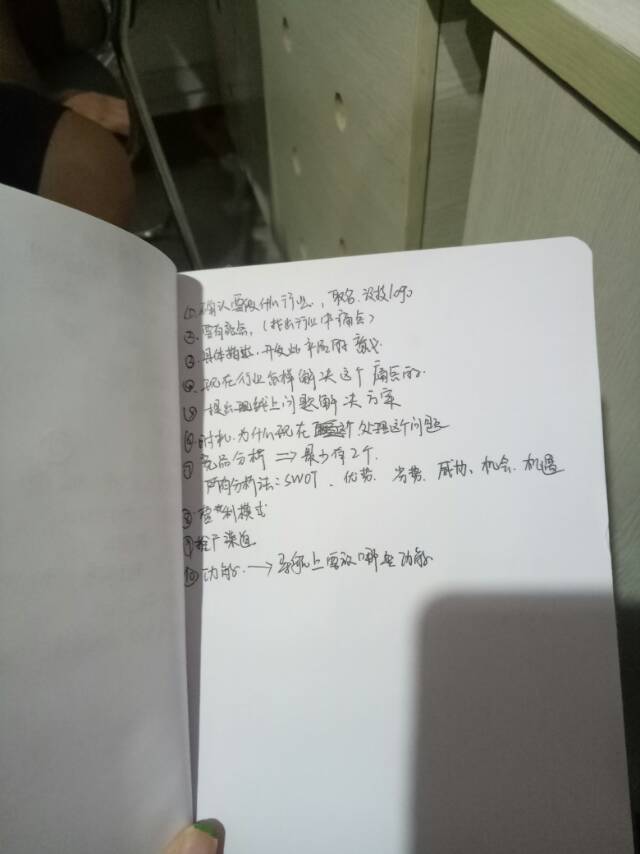 ① 确认要做什么行业，取名.设计logo
② 要有痛点，(找出行业中痛点)
③ 具体描述.开发此产品的意义
④ 现在行业怎样解决这个痛点的.
⑤ 提出线上问题解决方案
⑥ 时机.为什么现在 处理这个问题
⑦ 竞品分析 ⇒ 最少有2个.
产品分析法:SWOT、优势、劣势、威胁、机会、机遇
⑧ 营利模式
⑨ 推广渠道
⑩ 功能 → 手机上要放哪些功能